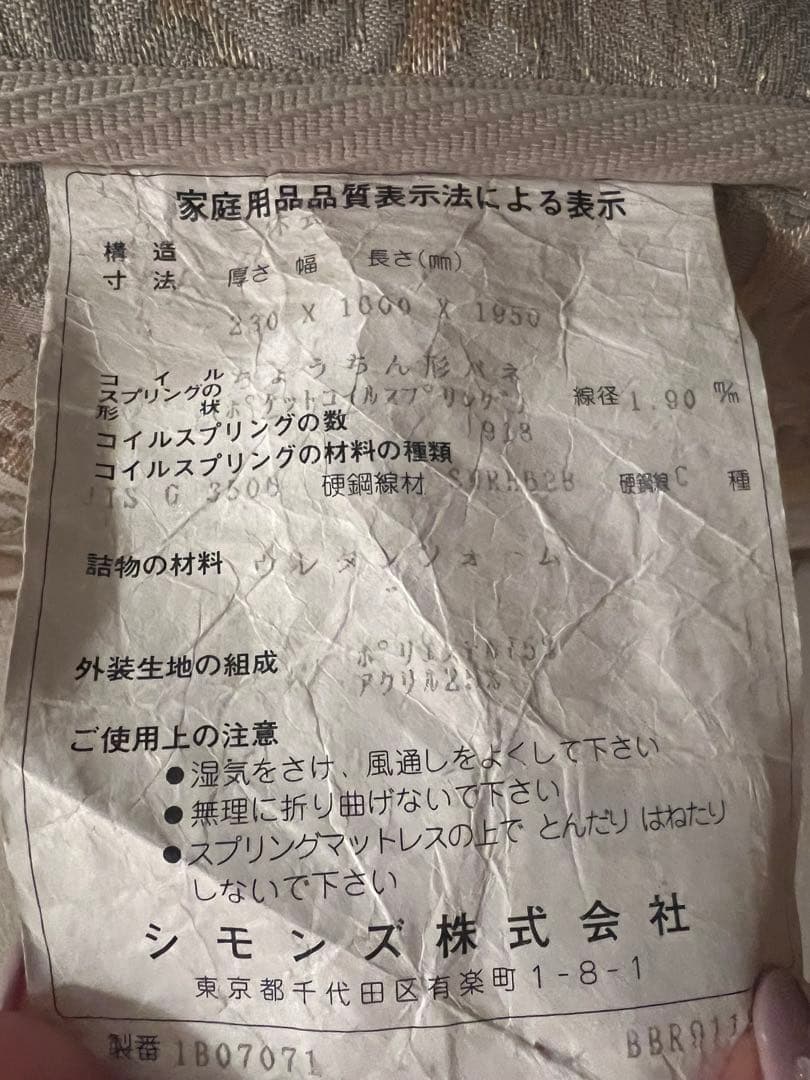 家庭用品品質表示法による表示
構造
寸法 厚さ 幅 長さ(mm)
230 X 1000 X 1950
コイル
スプリングの
形状
ちょうちん形バネ
ポケットコイルスプリング
線径 1.90 m/m
コイルスプリングの数 918
コイルスプリングの材料の種類
JIS G 3506 硬鋼線材 硬鋼線C 種
詰物の材料 ウレタンフォーム
外装生地の組成 ポリエステル75%
アクリル25%
ご使用上の注意
●湿気をさけ、風通しをよくして下さい
●無理に折り曲げないで下さい
●スプリングマットレスの上で とんだり はねたり
しないで下さい
シモンズ株式会社
東京都千代田区有楽町1-8-1
製番 1B07071